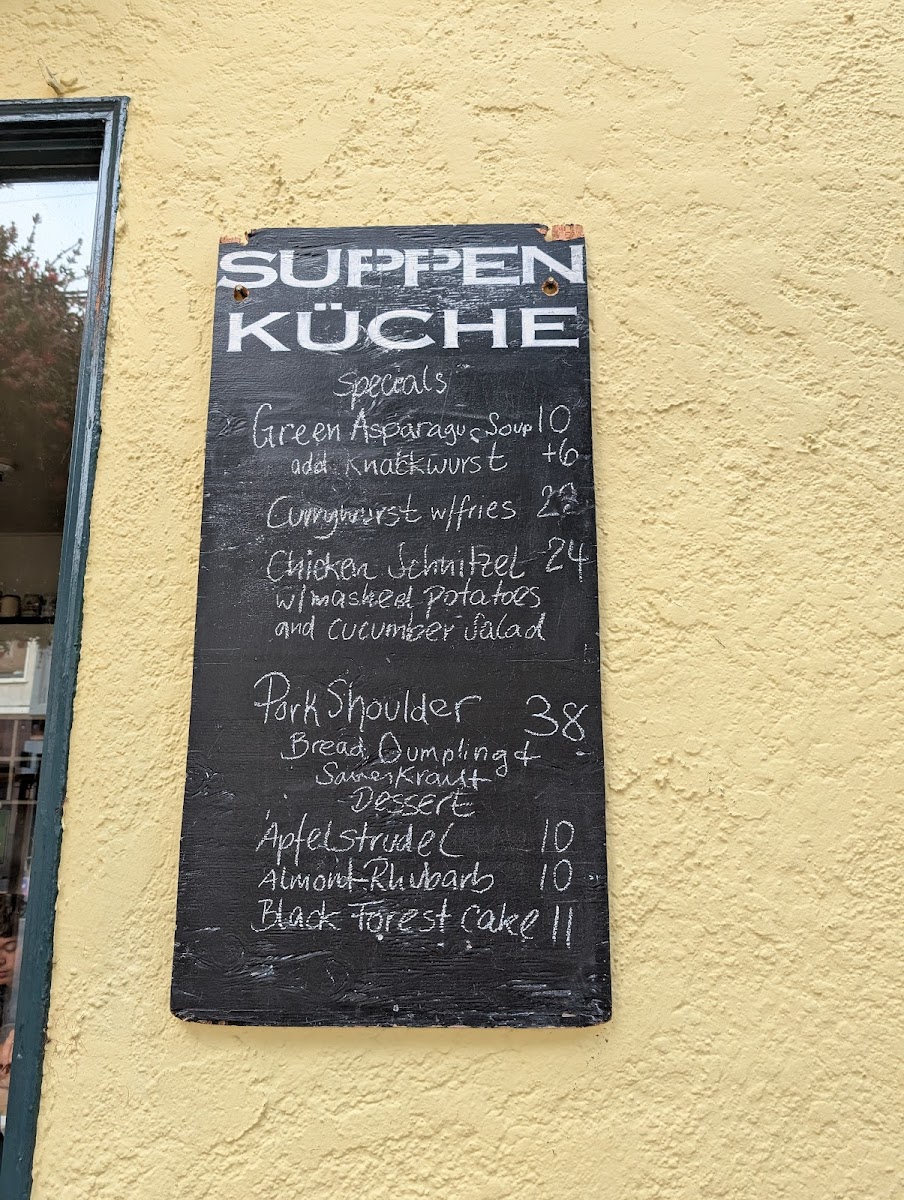 SUPPEN
KÜCHE
Specials
Green Asparagus Soup 10
add Knackwurst +6
Currywurst w/fries
Chicken Schnitzel 24
w/mashed potatoes
and cucumber Salad
Pork Shoulder 38
Bread Dumpling &
Sauerkraut
Dessert
Apfelstrudel 10
Almond-Rhubarb 10
Black Forest Cake 11